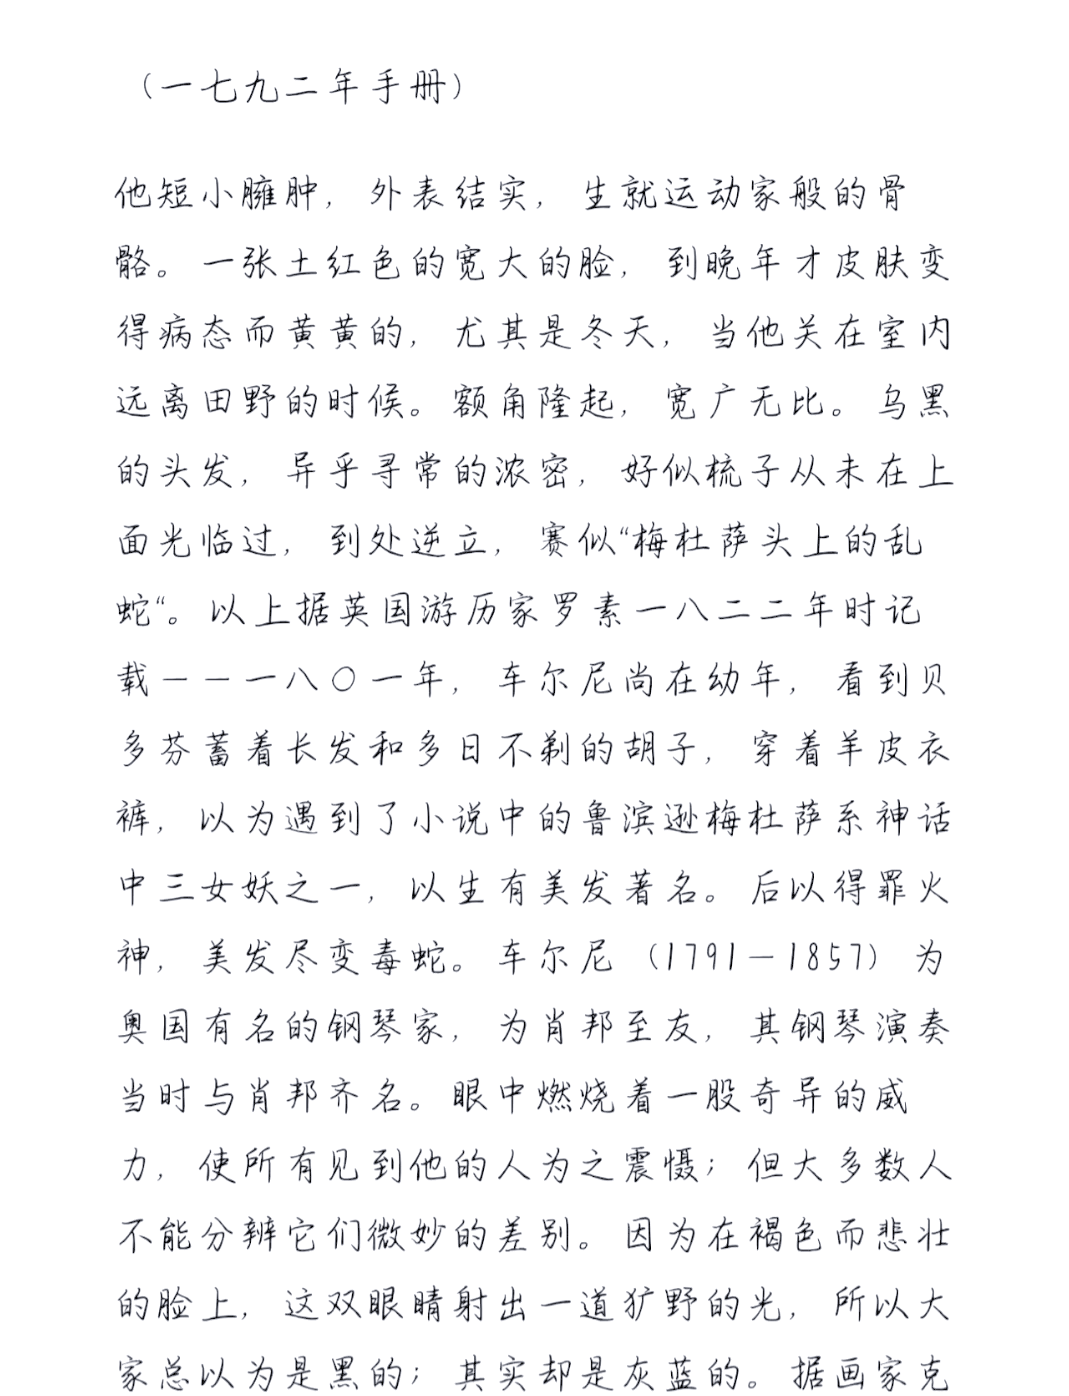 （一七九二年手册）
他短小臃肿，外表结实，生就运动家般的骨
骼。一张土红色的宽大的脸，到晚年才皮肤变
得病态而黄黄的，尤其是冬天，当他关在室内
远离田野的时候。额角隆起，宽广无比。乌黑
的头发，异乎寻常的浓密，好似梳子从未在上
面光临过，到处逆立，赛似“梅杜萨头上的乱
蛇“。以上据英国游历家罗素一八二二年时记
载——一八〇一年，车尔尼尚在幼年，看到贝
多芬蓄着长发和多日不剃的胡子，穿着羊皮衣
裤，以为遇到了小说中的鲁滨逊梅杜萨系神话
中三女妖之一，以生有美发著名。后以得罪火
神，美发尽变毒蛇。车尔尼（1791—1857）为
奥国有名的钢琴家，为肖邦至友，其钢琴演奏
当时与肖邦齐名。眼中燃烧着一股奇异的威
力，使所有见到他的人为之震慑；但大多数人
不能分辨它们微妙的差别。因为在褐色而悲壮
的脸上，这双眼睛射出一道犷野的光，所以大
家总以为是黑的；其实却是灰蓝的。据画家克